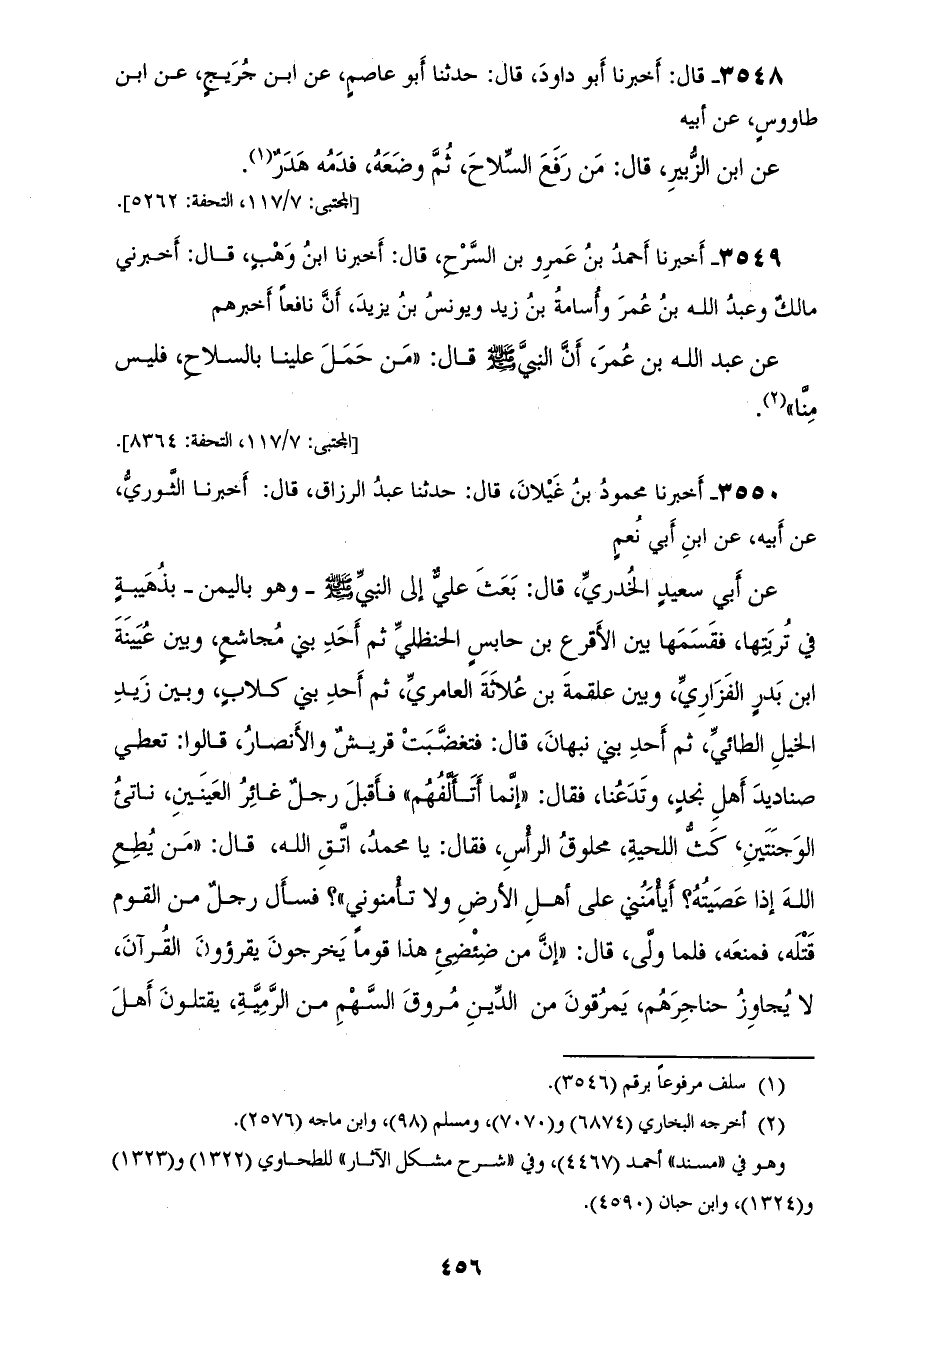 ٣٥٤٨ـ قال: أَخبرنا أَبو داودَ، قال: حدثنا أَبو عاصمٍ، عن ابن جُرَيجٍ، عن ابن
طاووسٍ، عن أبيه
عن ابن الزُّبيرِ، قال: مَن رَفَعَ السِّلاحَ، ثُمَّ وضَعَهُ، فدَمُه هَدَرٌ(١).
[المجتبى: ١١٧/٧، التحفة: ٥٢٦٢].
٣٥٤٩ـ أَخبرنا أَحمدُ بنُ عَمرِو بن السَّرْحِ، قال: أَخبرنا ابنُ وَهْبٍ، قال: أَخبرني
مالكٌ وعبدُ الله بنُ عُمرَ وأُسامةُ بنُ زيد ويونسُ بنُ يزيدَ، أَنَّ نافعاً أَخبرهم
عن عبد الله بن عُمرَ، أَنَّ النبيَّ ﷺ قال: «مَن حَمَلَ علينا بالسلاحِ، فليس
مِنَّا»(٢).
[المجتبى: ١١٧/٧، التحفة: ٨٣٦٤].
٣٥٥٠ـ أَخبرنا محمودُ بنُ غَيْلانَ، قال: حدثنا عبدُ الرزاق، قال: أَخبرنا الثَّوريُّ،
عن أَبيه، عن ابنِ أَبي نُعمٍ
عن أَبي سعيدٍ الخُدريِّ، قال: بَعَثَ عليٌّ إلى النبيِّ ﷺ ـ وهو باليمن ـ بذُهَيبةٍ
في تُربَتِها، فقَسَمَها بين الأَقرع بن حابسٍ الحنظليِّ ثم أَحَدِ بني مُجاشعٍ، وبين عُيَينَةَ
ابن بَدرٍ الفَزَاريِّ، وبين علقمةَ بن عُلاثَةَ العامريِّ، ثم أَحدِ بني كلابٍ، وبين زَيدِ
الخيلِ الطائيِّ، ثم أَحدِ بني نبهانَ، قال: فتغضَّبَتْ قريشٌ والأَنصارُ، قالوا: تعطي
صناديدَ أَهلِ نجدٍ، وتَدَعُنا، فقال: «إنَّما أَتَأَلَّفُهُم» فأَقبلَ رجلٌ غائِرُ العَينَينِ، ناتئُ
الوَجنَتَينِ، كَثُّ اللحيةِ، محلوقُ الرأْسِ، فقال: يا محمدُ، اتَّقِ الله، قال: «مَن يُطِعِ
اللهَ إذا عَصَيتُهُ؟ أَيأْمَنُني على أَهلِ الأَرضِ ولا تأْمنوني»؟ فسأَل رجلٌ من القومِ
قَتْلَه، فمنعَه، فلما ولَّى، قال: «إنَّ من ضِئْضِئِ هذا قوماً يَخرجونَ يقرؤونَ القُرآنَ،
لا يُجاوِزُ حناجِرَهُم، يَمرُقونَ من الدِّينِ مُروقَ السَّهْمِ من الرَّمِيَّةِ، يقتلونَ أَهلَ
(١) سلف مرفوعاً برقم (٣٥٤٦).
(٢) أخرجه البخاري (٦٨٧٤) و(٧٠٧٠)، ومسلم (٩٨)، وابن ماجه (٢٥٧٦).
وهو في «مسند» أحمد (٤٤٦٧)، وفي «شرح مشكل الآثار» للطحاوي (١٣٢٢) و(١٣٢٣)
و(١٣٢٤)، وابن حبان (٤٥٩٠).
٤٥٦